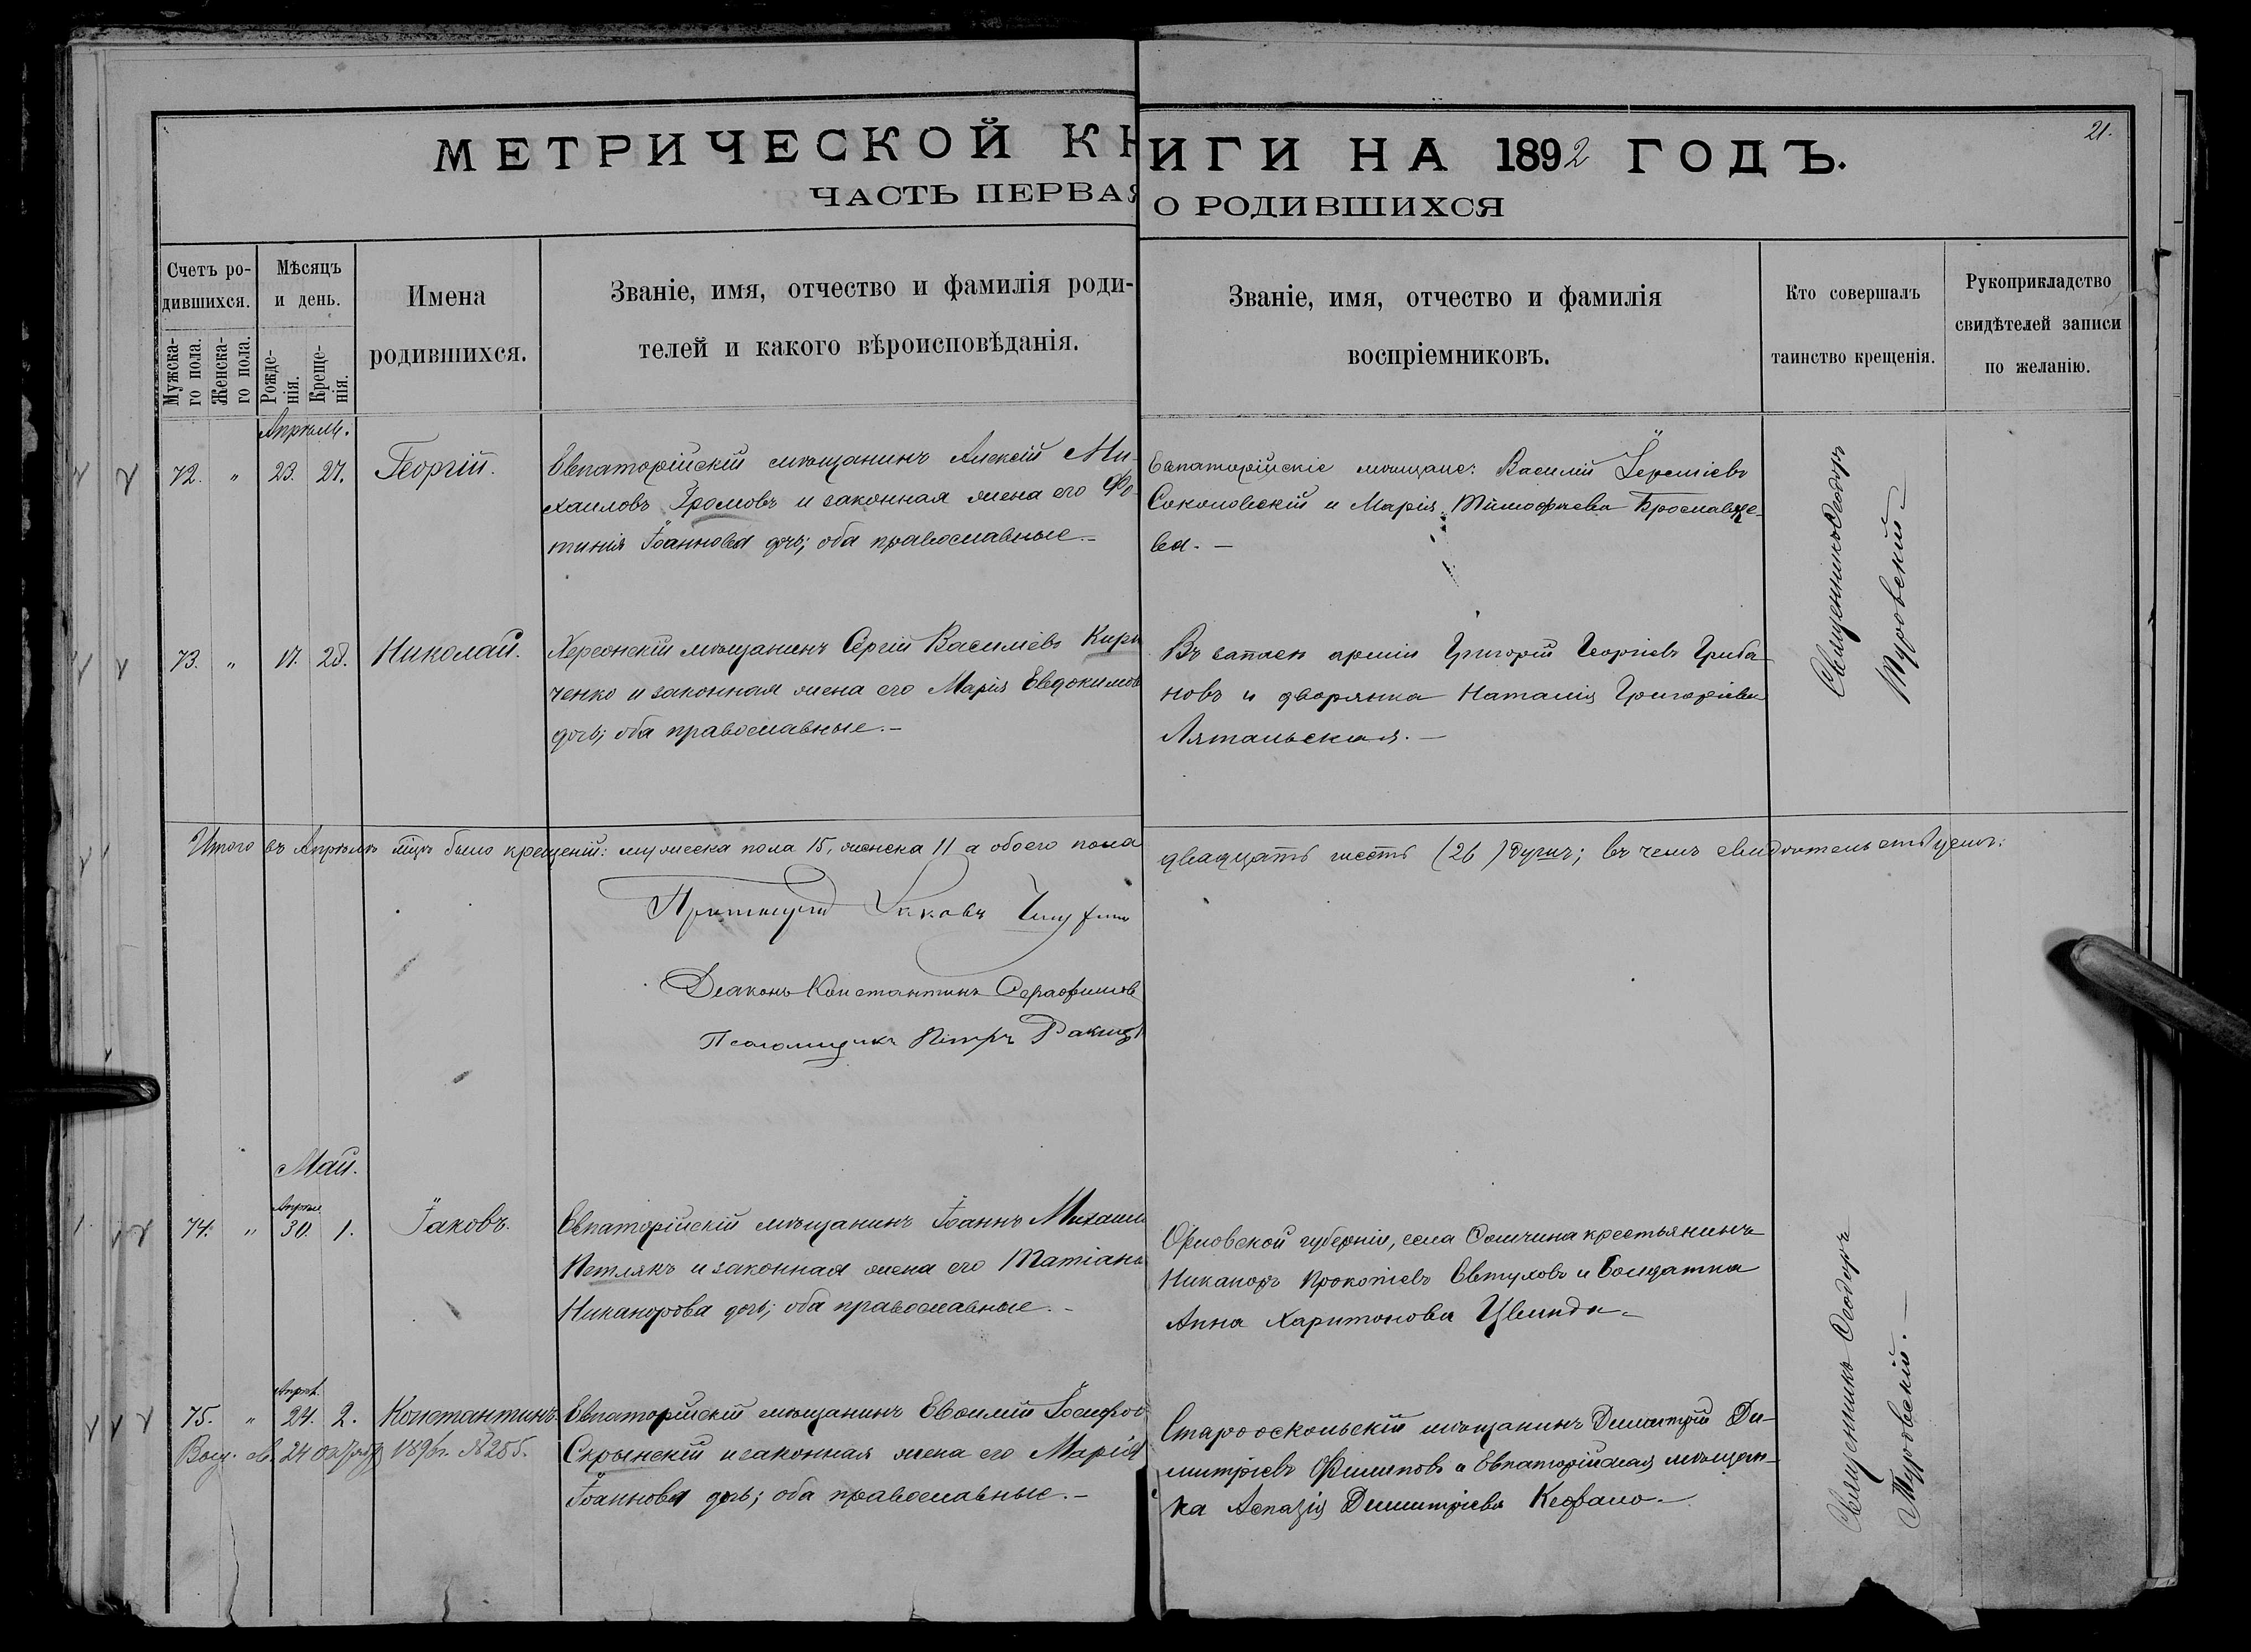 МЕТРИЧЕСКОЙ КНИГИ НА 1892 ГОДЪ.
21.
ЧАСТЬ ПЕРВАЯ О РОДИВШИХСЯ
Счетъ ро-
дившихся.
Мужска-
го пола.
Женска-
го пола.
Мѣсяцъ
и день.
Рожде-
нія.
Креще-
нія.
Имена
родившихся.
Званіе, имя, отчество и фамилія роди-
телей и какого вѣроисповѣданія.
Званіе, имя, отчество и фамилія
воспріемниковъ.
Кто совершалъ
таинство крещенія.
Рукоприкладство
свидѣтелей записи
по желанію.
Апрѣль.
72. " 23. 27. Георгій.
Евпаторійскій мѣщанинъ Алексій Ми-
хаиловъ Громовъ и законная жена его Фо-
тинія Іоаннова дочь; оба православные.-
Евпаторійскіе мѣщане: Василій Іереміевъ
Соколовскій и Марія Тимофѣева
ва. -
Священникъ Ѳеодоръ
Туровскій -
73. " 17. 28. Николай.
Херсонскій мѣщанинъ Сергій Василіевъ Кири
ченко и законная жена его Марія Евдокимов
дочь; оба православные.-
Въ запасѣ арміи Григорій Георгіевъ Гриба
новъ и дворянка Наталія Григоріева
Лятальская. -
Итого въ Апрѣлѣ мцѣ было крещеній: мужеска пола 15, женска 11 а обоего пола
двадцать шесть (26) душъ; въ чемъ свидѣтельствуемъ:
Протоіерей Іаковъ
Діаконъ Константинъ Серафимов
Псаломщикъ Петръ
Май.
Апрѣл
74. " 30. 1. Іаковъ.
Евпаторійскій мѣщанинъ Іоаннъ Михаил
Петлякъ и законная жена его Татіана
Никанорова дочь; оба православные. -
Орловской губерніи, села Сомчина крестьянинъ
Никаноръ Прокопіевъ Евтуховъ и Солдатка
Анна Харитонова Цвинда-
Священникъ Ѳеодоръ
Туровскій. -
Апрѣл.
75. " 24. 2. Константинъ.
Выд. св. 24 1896г. № 285.
Евпаторійскій мѣщанинъ Евѳимій Іосифов
Скрынскій и законная жена его Марія
Іоаннова дочь; оба православные. -
Старооскольскій мѣщанинъ Димитрій Ди-
митріевъ Филиповъ и Евпаторійская мѣщан-
ка Аспазія Димитріева Кефало-